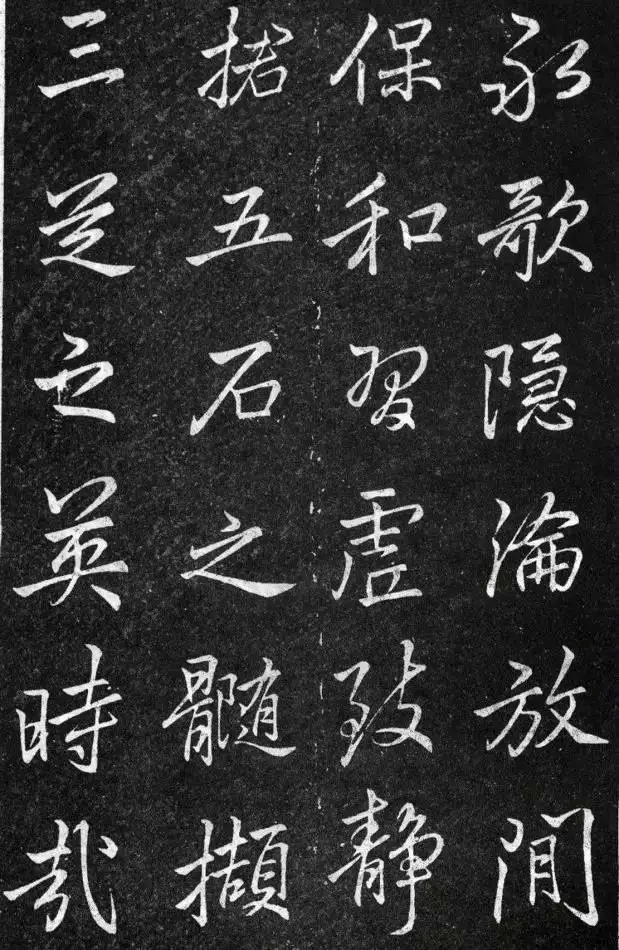 永歌隱淪放閒
保和習虛致靜
掿五石之髓擷
三芝之英時哉